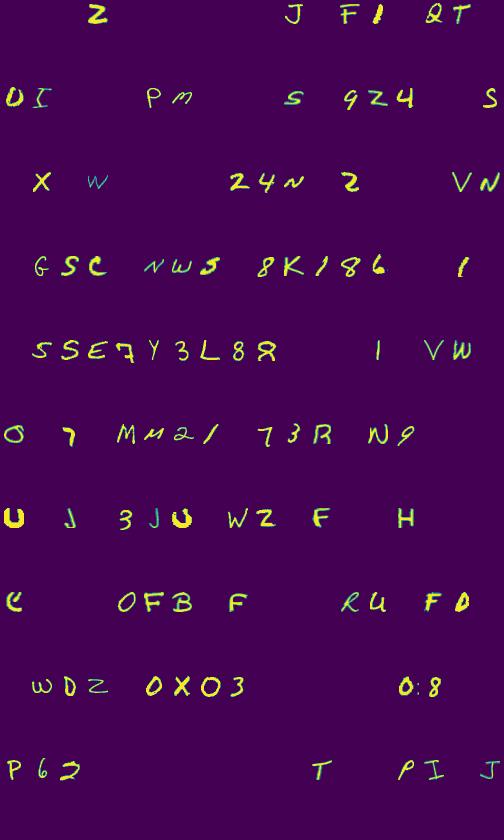 Z J F 1 Q T
D I P M S 9 Z 4 S
X W 2 4 N 2 V N
G S C N W S 8 K 1 8 6 1
S S E 7 Y 3 L 8 8 1 V W
O 7 M M 2 1 7 3 R N 9
U J 3 J U W Z F H
C O F B F R U F D
W D Z 0 X O 3 0 : 8
P 6 2 T P I J